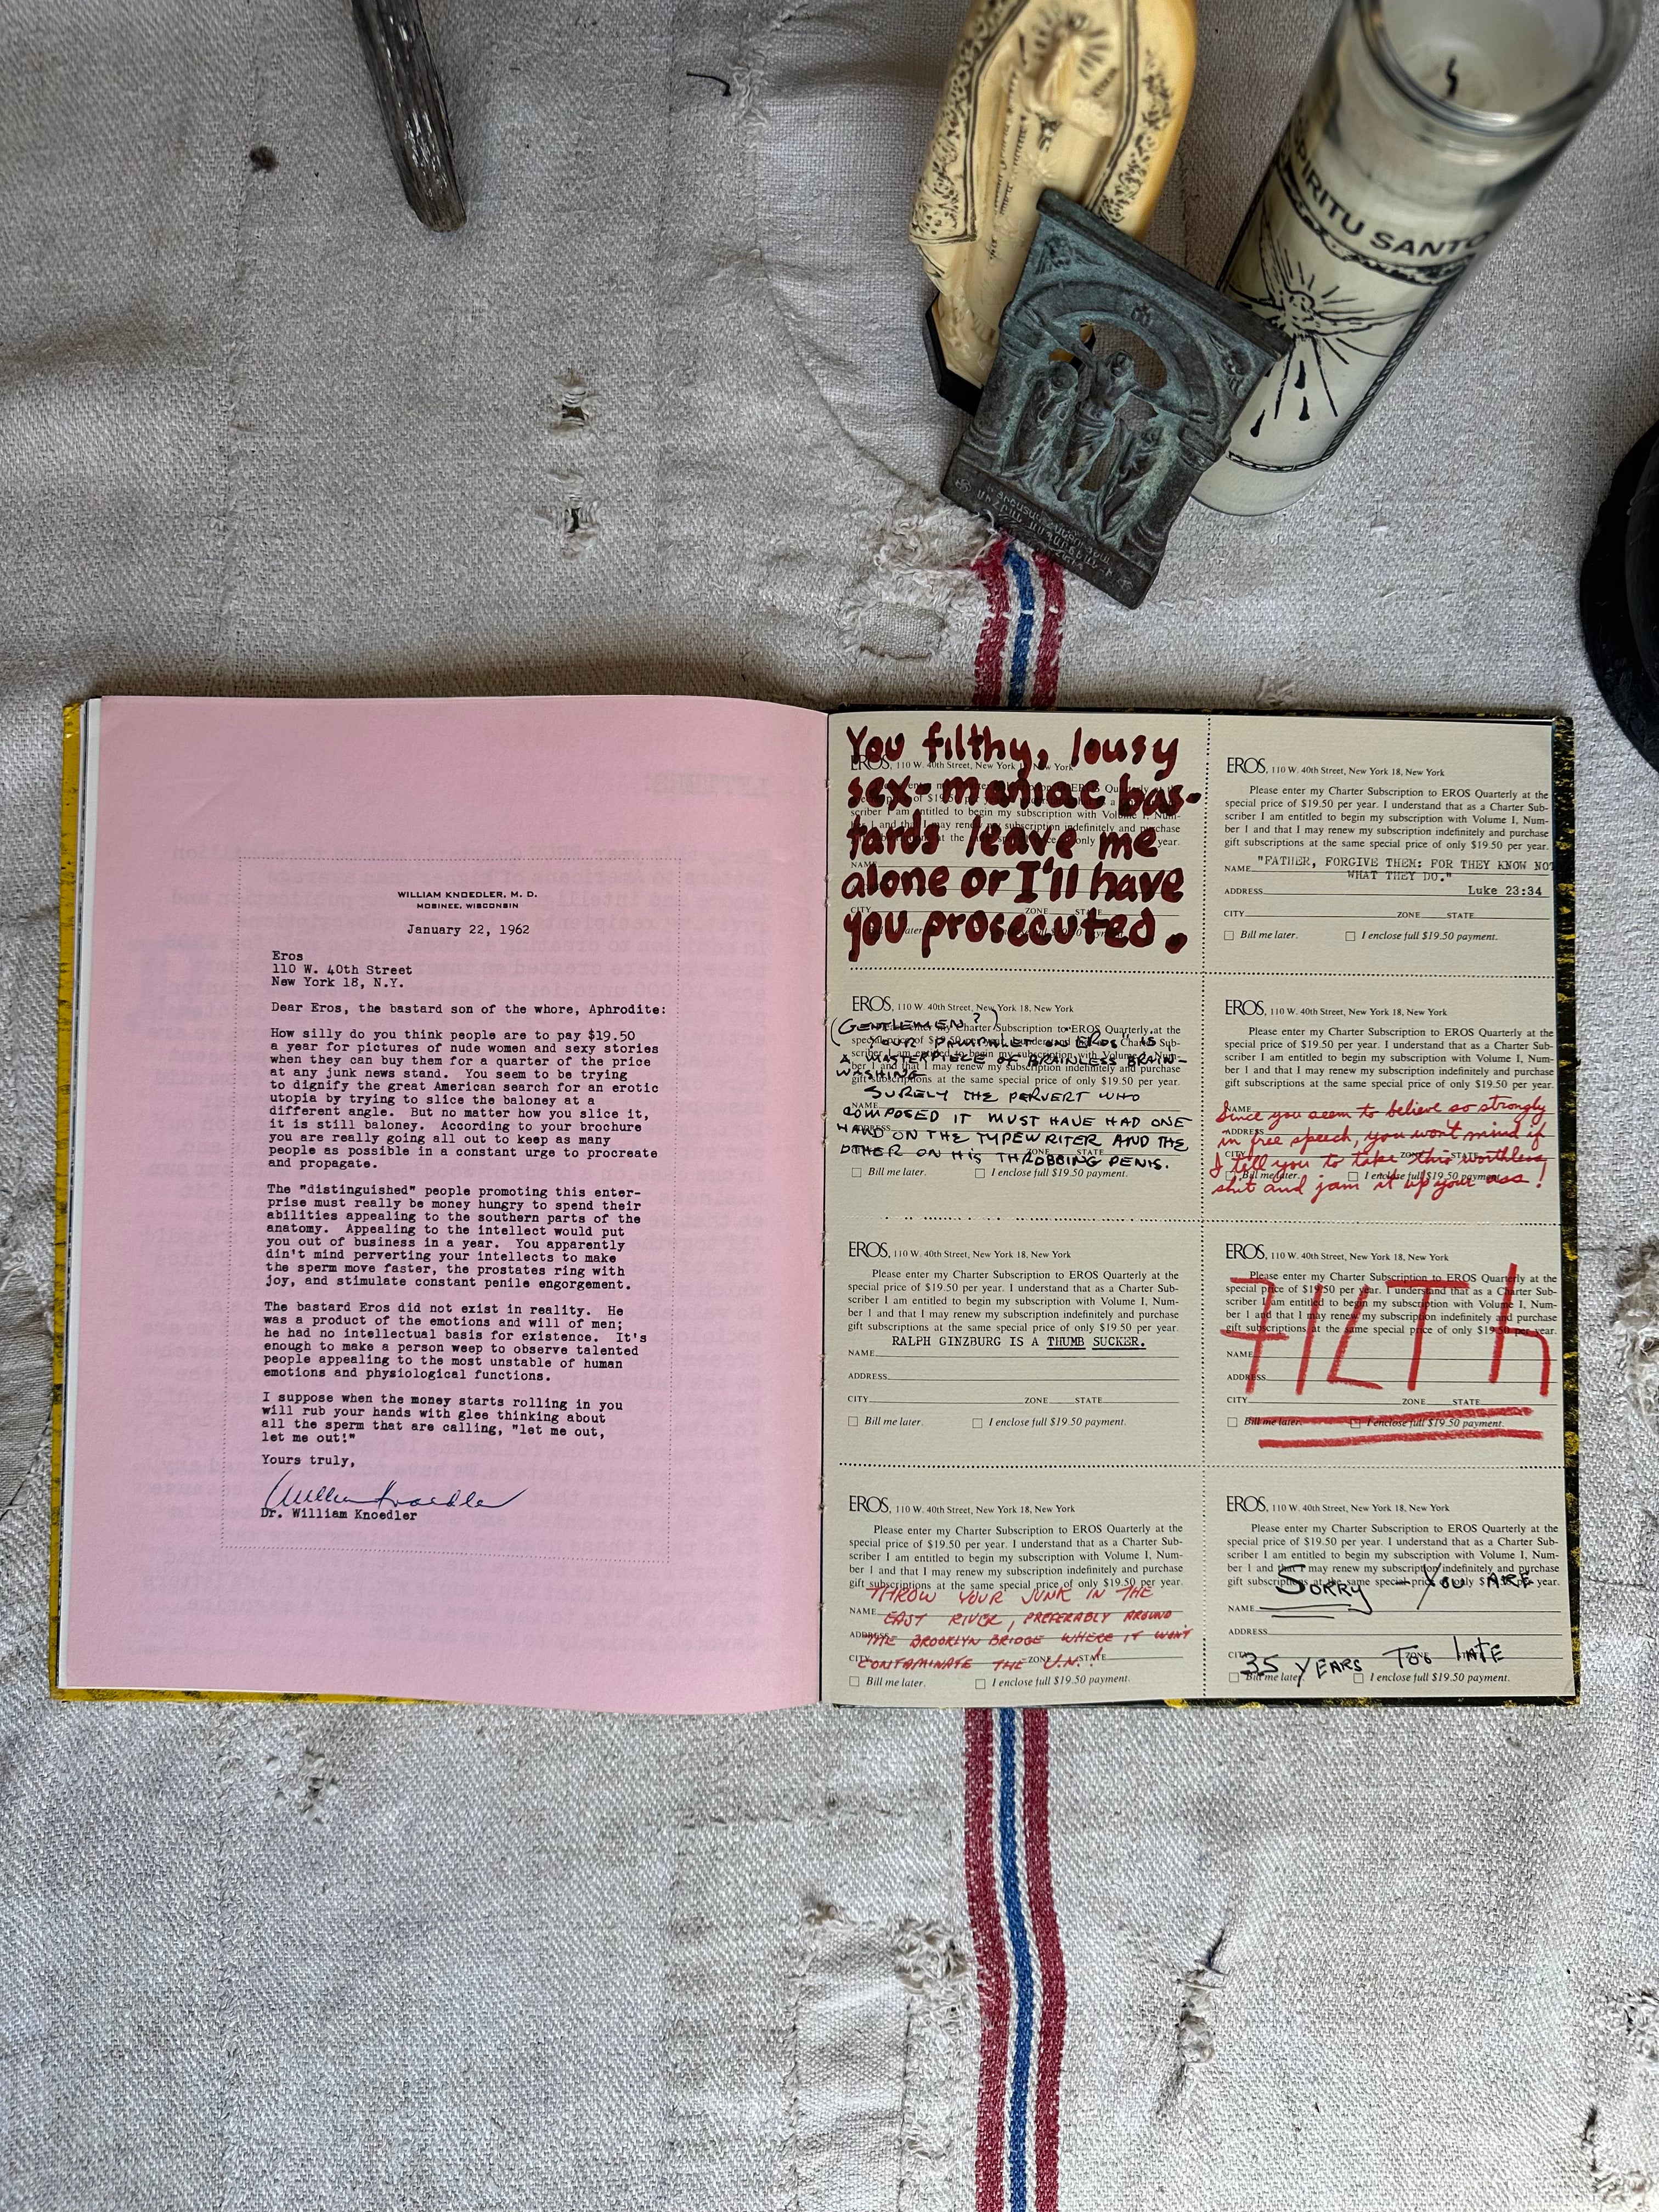 SPIRITU SANTO
WILLIAM KNOEDLER, M. D.
MOSINEE, WISCONSIN
January 22, 1962
Eros
110 W. 40th Street
New York 18, N.Y.
Dear Eros, the bastard son of the whore, Aphrodite:
How silly do you think people are to pay $19.50
a year for pictures of nude women and sexy stories
when they can buy them for a quarter of the price
at any junk news stand. You seem to be trying
to dignify the great American search for an erotic
utopia by trying to slice the baloney at a
different angle. But no matter how you slice it,
it is still baloney. According to your brochure
you are really going all out to keep as many
people as possible in a constant urge to procreate
and propagate.
The "distinguished" people promoting this enter-
prise must really be money hungry to spend their
abilities appealing to the southern parts of the
anatomy. Appealing to the intellect would put
you out of business in a year. You apparently
din't mind perverting your intellects to make
the sperm move faster, the prostates ring with
joy, and stimulate constant penile engorgement.
The bastard Eros did not exist in reality. He
was a product of the emotions and will of men;
he had no intellectual basis for existence. It's
enough to make a person weep to observe talented
people appealing to the most unstable of human
emotions and physiological functions.
I suppose when the money starts rolling in you
will rub your hands with glee thinking about
all the sperm that are calling, "let me out,
let me out!"
Yours truly,
William Knoedler
Dr. William Knoedler
You filthy, lousy
sex-maniac bas-
tards leave me
alone or I'll have
you prosecuted.
EROS, 110 W. 40th Street, New York 18, New York
Please enter my Charter Subscription to EROS Quarterly at the
special price of $19.50 per year. I understand that as a Charter Sub-
scriber I am entitled to begin my subscription with Volume I, Num-
ber 1 and that I may renew my subscription indefinitely and purchase
gift subscriptions at the same special price of only $19.50 per year.
NAME "FATHER, FORGIVE THEM: FOR THEY KNOW NOT
WHAT THEY DO."
ADDRESS Luke 23:34
CITY ZONE STATE
Bill me later. I enclose full $19.50 payment.
EROS, 110 W. 40th Street, New York 18, New York
(GENTLEMEN?)
YOUR PAMPHLET ON "EROS" IS
A MASTERPIECE OF BRAINLESS BRAIN-
WASHING.
gift subscriptions at the same special price of only $19.50 per year.
SURELY THE PERVERT WHO
NAME
COMPOSED IT MUST HAVE HAD ONE
HAND ON THE TYPEWRITER AND THE
OTHER ON HIS THROBBING PENIS.
Bill me later. I enclose full $19.50 payment.
EROS, 110 W. 40th Street, New York 18, New York
Please enter my Charter Subscription to EROS Quarterly at the
special price of $19.50 per year. I understand that as a Charter Sub-
scriber I am entitled to begin my subscription with Volume I, Num-
ber 1 and that I may renew my subscription indefinitely and purchase
gift subscriptions at the same special price of only $19.50 per year.
NAME
Since you seem to believe so strongly
ADDRESS
in free speech, you won't mind if
CITY ZONE STATE
I tell you to take this worthless
Bill me later. I enclose full $19.50 payment.
shit and jam it up your ass!
EROS, 110 W. 40th Street, New York 18, New York
Please enter my Charter Subscription to EROS Quarterly at the
special price of $19.50 per year. I understand that as a Charter Sub-
scriber I am entitled to begin my subscription with Volume I, Num-
ber 1 and that I may renew my subscription indefinitely and purchase
gift subscriptions at the same special price of only $19.50 per year.
RALPH GINZBURG IS A THUMB SUCKER.
NAME
ADDRESS
CITY ZONE STATE
Bill me later. I enclose full $19.50 payment.
EROS, 110 W. 40th Street, New York 18, New York
Please enter my Charter Subscription to EROS Quarterly at the
special price of $19.50 per year. I understand that as a Charter Sub-
scriber I am entitled to begin my subscription with Volume I, Num-
ber 1 and that I may renew my subscription indefinitely and purchase
gift subscriptions at the same special price of only $19.50 per year.
FILTh
NAME
ADDRESS
CITY ZONE STATE
Bill me later. I enclose full $19.50 payment.
EROS, 110 W. 40th Street, New York 18, New York
Please enter my Charter Subscription to EROS Quarterly at the
special price of $19.50 per year. I understand that as a Charter Sub-
scriber I am entitled to begin my subscription with Volume I, Num-
ber 1 and that I may renew my subscription indefinitely and purchase
gift subscriptions at the same special price of only $19.50 per year.
THROW YOUR JUNK IN THE
NAME
EAST RIVER, PREFERABLY AROUND
ADDRESS
THE BROOKLYN BRIDGE WHERE IT WON'T
CITY ZONE STATE
CONTAMINATE THE U.N.!
Bill me later. I enclose full $19.50 payment.
EROS, 110 W. 40th Street, New York 18, New York
Please enter my Charter Subscription to EROS Quarterly at the
special price of $19.50 per year. I understand that as a Charter Sub-
scriber I am entitled to begin my subscription with Volume I, Num-
ber 1 and that I may renew my subscription indefinitely and purchase
gift subscriptions at the same special price of only $19.50 per year.
SORRY — YOU ARE
NAME
ADDRESS
CITY
35 YEARS TOO LATE
Bill me later. I enclose full $19.50 payment.